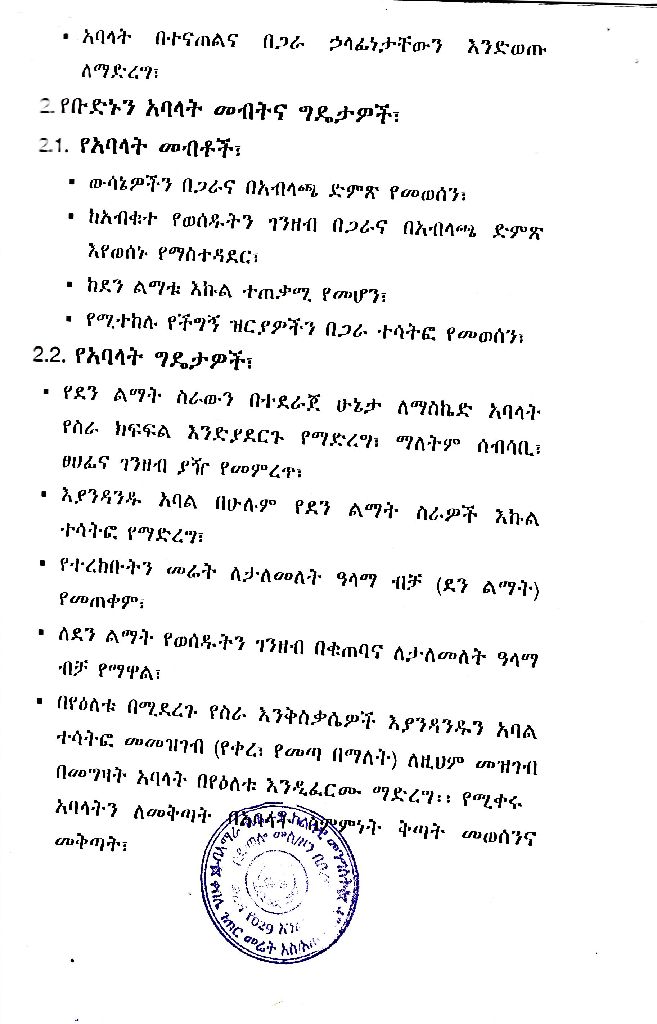 ▪ አባላት በተናጠልና በጋራ ኃላፊነታቸውን እንድወጡ
ለማድረግ፣
2. የቡድኑን አባላት መብትና ግዴታዎች፣
2.1. የአባላት መብቶች፣
▪ ውሳኔዎችን በጋራና በአብላጫ ድምጽ የመወሰን፣
▪ ከአብቁተ የወሰዱትን ገንዘብ በጋራና በአብላጫ ድምጽ
እየወሰኑ የማስተዳደር፣
▪ ከደን ልማቱ እኩል ተጠቃሚ የመሆን፣
▪ የሚተከሉ የችግኝ ዝርያዎችን በጋራ ተሳትፎ የመወሰን፣
2.2. የአባላት ግዴታዎች፣
▪ የደን ልማት ስራውን በተደራጀ ሁኔታ ለማስኬድ አባላት
የስራ ክፍፍል እንድያደርጉ የማድረግ፣ ማለትም ሰብሳቢ፣
ፀሀፊና ገንዘብ ያዥ የመምረጥ፣
▪ እያንዳንዱ አባል በሁሉም የደን ልማት ስራዎች እኩል
ተሳትፎ የማድረግ፣
▪ የተረከቡትን መሬት ለታለመለት ዓላማ ብቻ (ደን ልማት)
የመጠቀም፣
▪ ለደን ልማት የወሰዱትን ገንዘብ በቁጠባና ለታለመለት ዓላማ
ብቻ የማዋል፣
▪ በየዕለቱ በሚደረጉ የስራ እንቅስቃሴዎች እያንዳንዱን አባል
ተሳትፎ መመዝገብ (የቀረ፣ የመጣ በማለት) ለዚህም መዝገብ
በመግዛት አባላት በየዕለቱ እንዲፈርሙ ማድረግ፡፡ የሚቀሩ
አባላትን ለመቅጣት በአባላት ስምምነት ቅጣት መወሰንና
መቅጣት፣